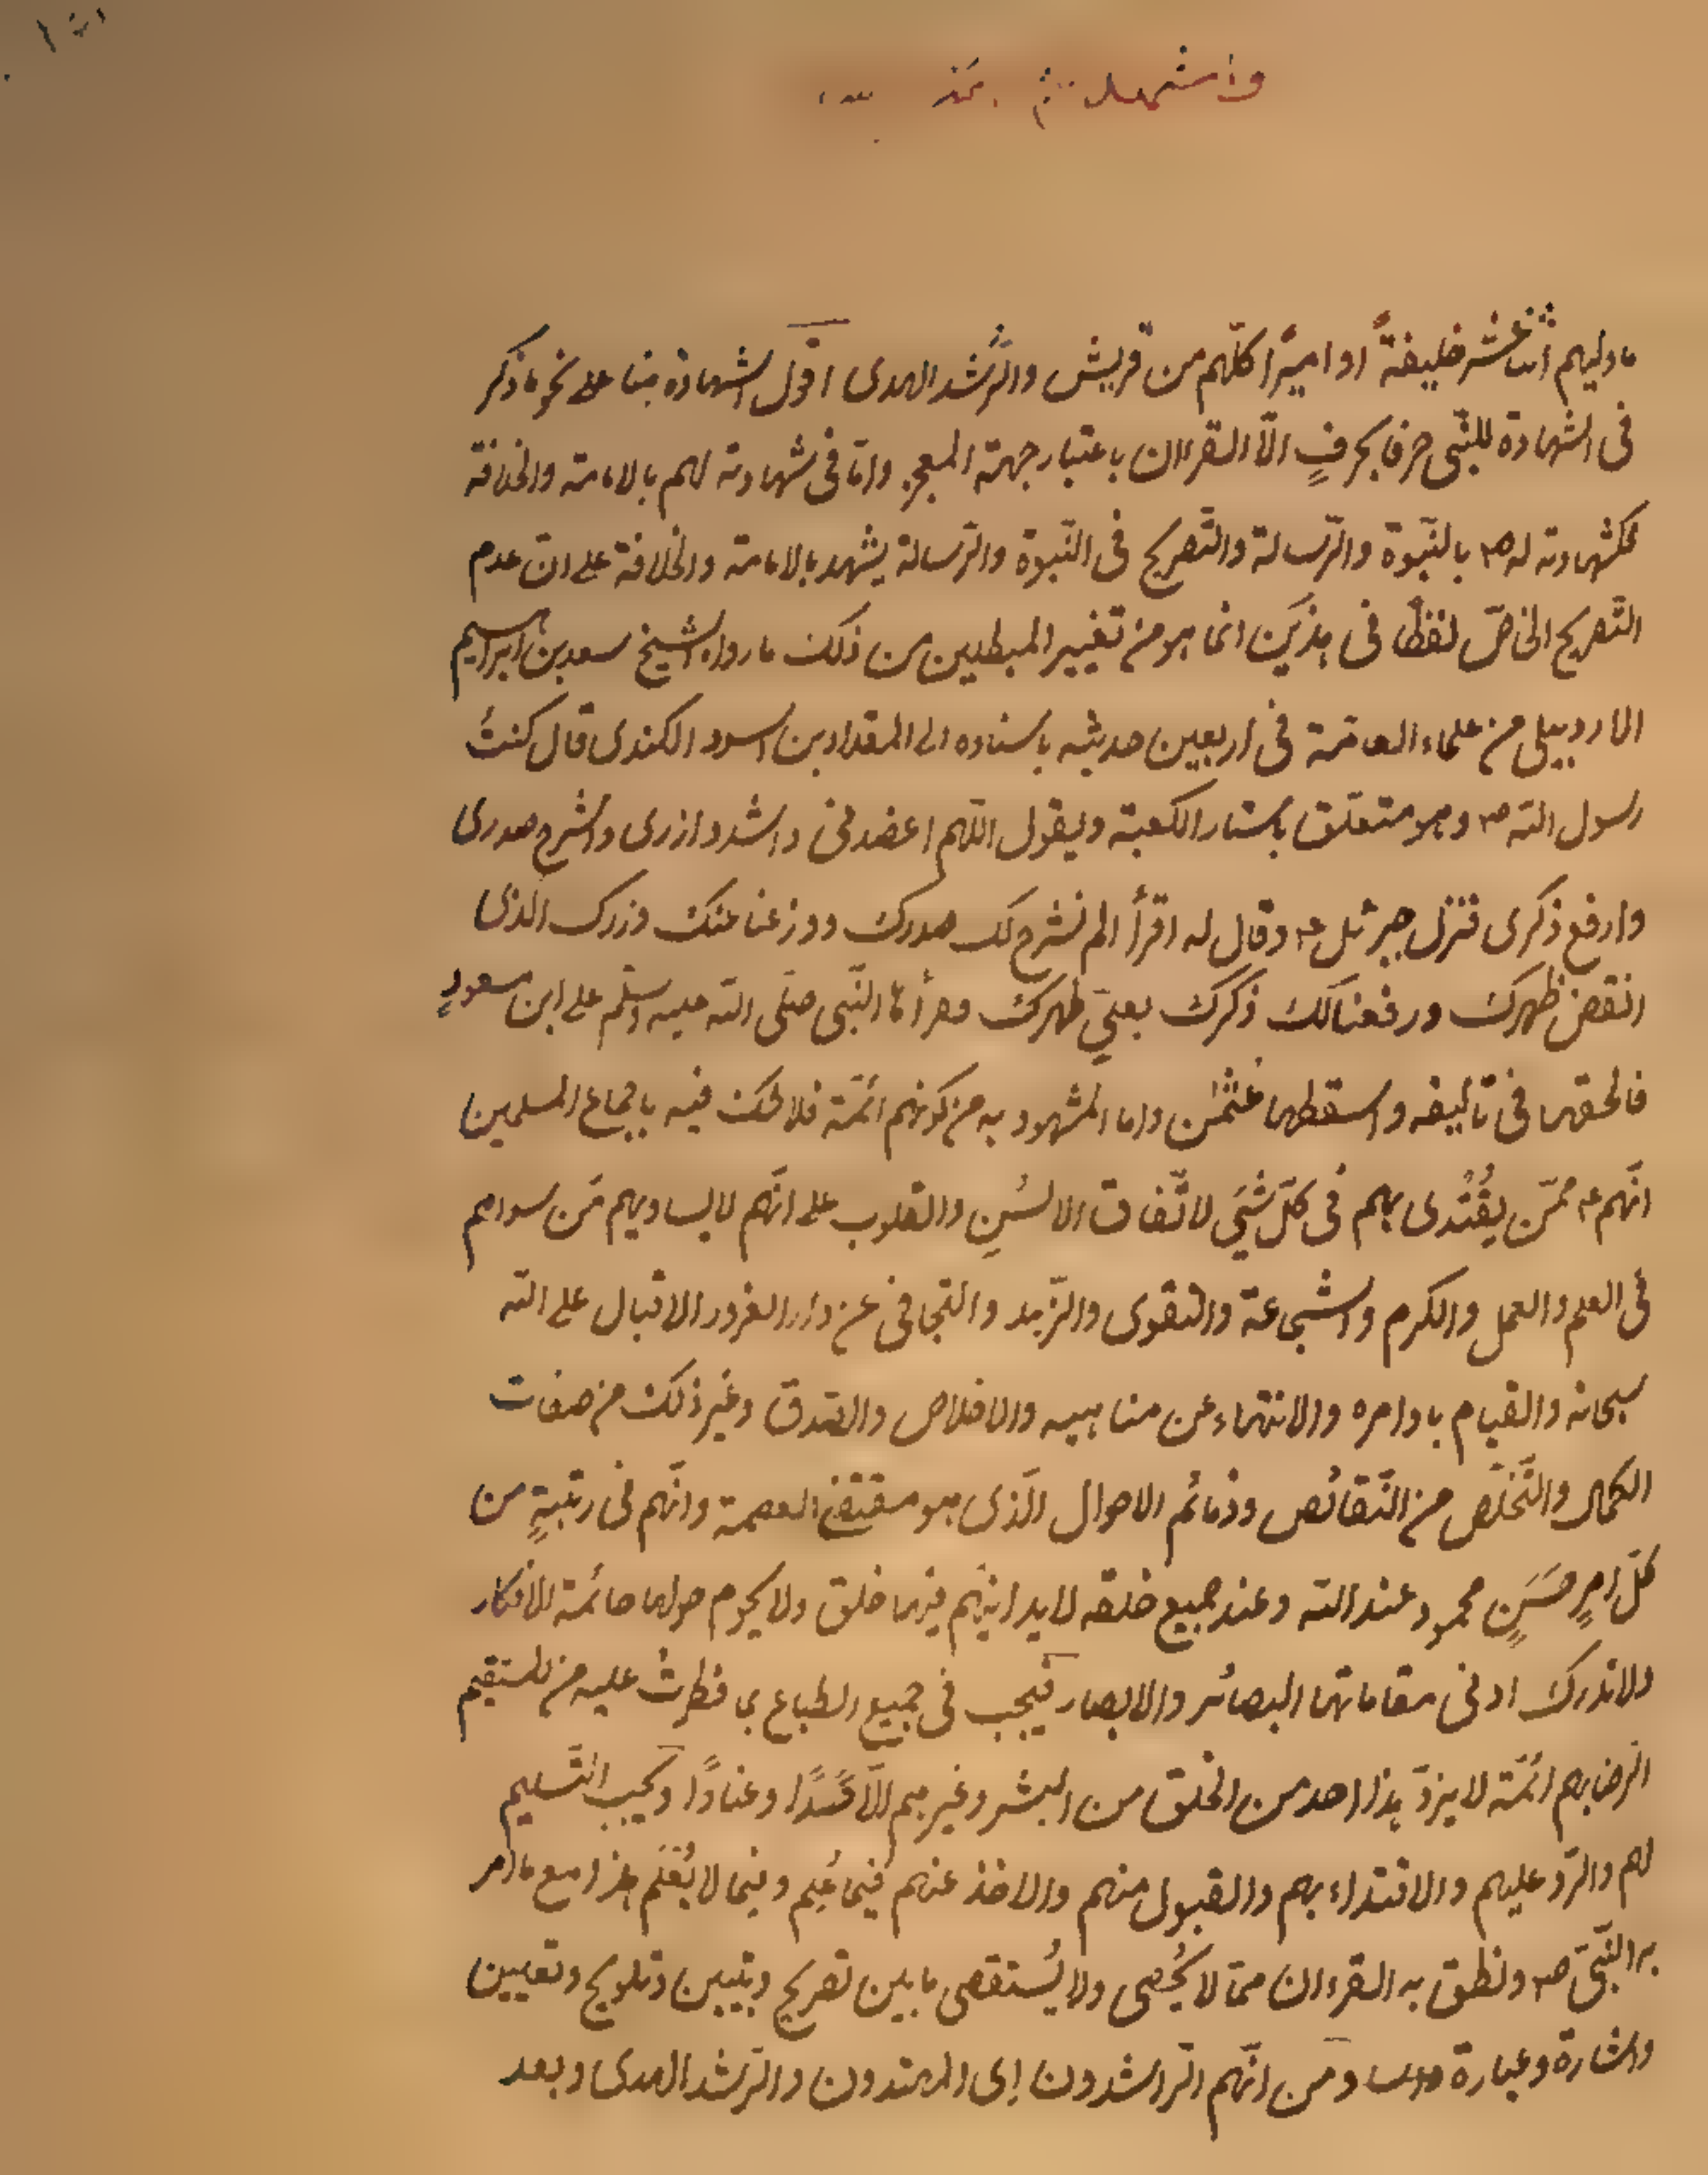 ما وليهم اثنا عشر خليفةً او اميرًا كلّهم من قريش والرّشد الهدى اقول الشهادة منا على نحو ما ذكر
فى الشهادة للنّبى حرفا بحرفٍ الّا القرءان باعتبار جهة المعجز وامّا فى شهادته لهم بالامامة والخلافة
فكشهادته له ص بالنّبوة والرّسالة والتّصريح فى النّبوة والرّسالة يشهد بالامامة والخلافة على انّ عدم
التّصريح الخاصّ لفظًا فى هذين انما هو من تغيير المبطلين من ذلك ما رواه الشيخ سعد بن ابراهيم
الاردبيلى من علماء العامّة فى اربعين حديثه باسناده الى المقداد بن اسود الكندى قال كنتُ
رسول الله ص وهو متعلّق باستار الكعبة ويقول اللّهم اعضدنى واشدد ازرى واشرح صدرى
وارفع ذكرى فنزل جبرئل ع وقال له اقرأ الم نشرح لك صدرك ووزعنا عنك وزرك الذى
انقض ظهرك ورفعنا لك ذكرك بعلىٍ ظهرك وقرأها النّبى صلّى الله عليه وسلّم على ابن مسعودٍ
فالحقهما فى تأليفه واسقطهما عثمٰن واما المشهود به من كونهم ائمّة فلا شك فيه باجماع المسلمين
انّهم ع ممّن يُقْتدى بهم فى كلّ شَيْ لاتّفاق الالسُنِ والقلوب على انّهم لا يساويهم مَن سواهم
فى العلم والعمل والكرم والشجاعة والتقوى والزّهد والتجافى عن دار الغرور الاقبال على الله
سبحانه والقيام باوامره والانتهاء عن مناهيه والاخلاص والصّدق وغير ذلك من صفات
الكمال والتّخلّص من النّقائص وذمائم الاحوال الّذى هو مقتضى العصمة وانّهم فى رتبةٍ من
كلّ امرٍ حسَنٍ محمود عند الله وعند جميع خلقه لا يدانيهم فيها خلق ولا يحوم حولها حائمة للافكار
ولا تدرك ادنى مقاماتها البصائر والابصار فيجب فى جميع الطباع بما فطرتْ عليه من المستقيم
الرضا بهم ائمّة لا يردّ هذا احد من الخلق من البشر وغيرهم الّا حَسَدًا وعنادًا ويجب التّسليم
لهم والرّد عليهم والاقتداء بهم والقبول منهم والاخذ عنهم فيما عُلِم وفيما لا يُعْلَم هذا مع ما امر
به النّبىّ ص ونطق به القرءان ممّا لا يُحصى ولا يُستقصى ما بين تصريح وتبيين وتلويح وتعيين
واشارة وعبارة ومن انّهم الرّاشدون اى المهتدون والرّشد الهدى وبعد